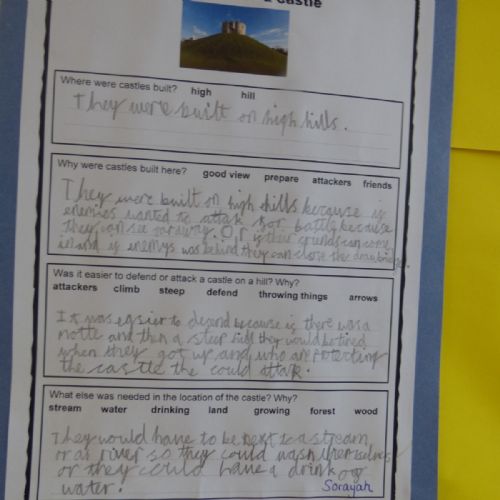 a Castle
Where were castles built? high hill
They were built on high hills.
Why were castles built here? good view prepare attackers friends
They were built on high hills because if
enemies wanted to attak for battle because
they can see faraway. Or if their friends can come
in and if enemys was behind they can close the drawbridge.
Was it easier to defend or attack a castle on a hill? Why?
attackers climb steep defend throwing things arrows
It was easier to defend because is there was a
motte and then a steep hill they would be tired
when they got up and who are protecting
the castle the could attak.
What else was needed in the location of the castle? Why?
stream water drinking land growing forest wood
They would have to be next to a stream
or a river so they could wash themselves
or they could have a drink of
water.
Sorayah